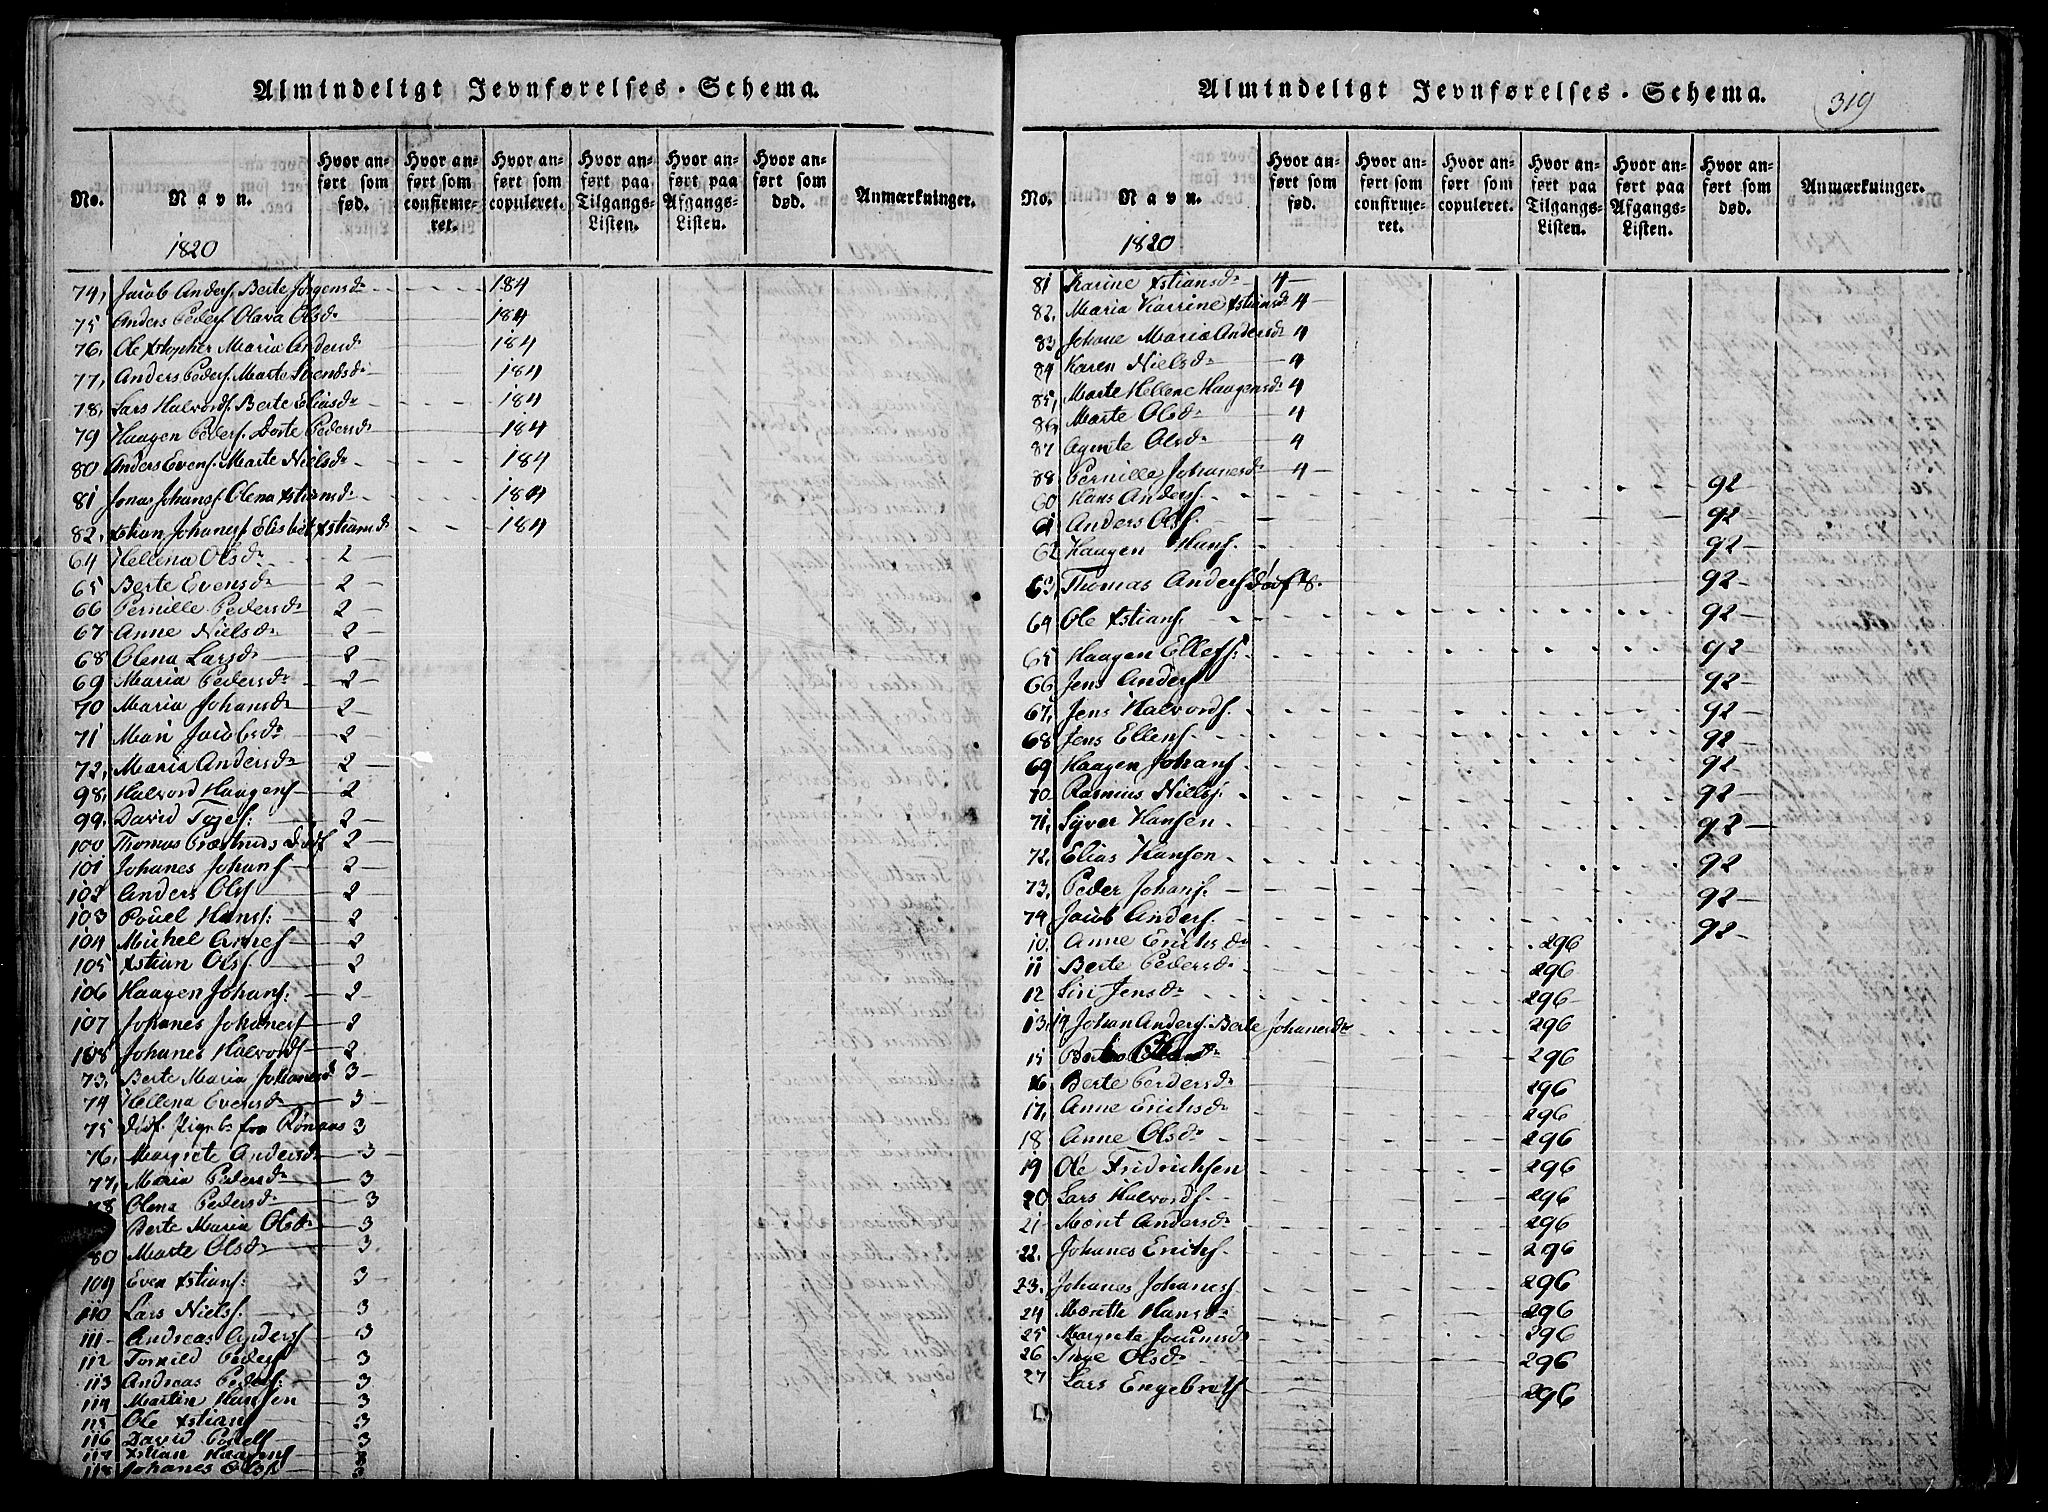 Almindeligt Jevnførelses-Schema.
No.
Navn.
Hvor anført som fød.
Hvor anført som confirmeret.
Hvor anført som copuleret.
Hvor anført paa Tilgangs-Listen.
Hvor anført paa Afgangs-Listen.
Hvor anført som død.
Anmærkninger.
1820
74, Jacob Anders. Berte Jørgensdr 184
75 Anders Peders. Olava Olsdr 184
76, Ole Xstopher Maria Andersd 184
77, Anders Peders. Marte 184
78, Lars Halvords. Berte Eliasdr 184
79 Haagen Peders. Dorte Pedersd 184
80 Anders Evens. Marte Nielsdr 184
81 Jonas Johans. Olena Xstiansdr 184
82, Xstian Johanes. Elisbet Xstiansd 184
64 Hellena Olsdr 2
65 Berte Evensdr 2
66 Pernille Pedersdr 2
67 Anne Nielsdr 2
68 Olena Larsdr 2
69 Maria Pedersdr 2
70 Maria Johansdr 2
71 Mari Jacobsdr 2
72, Maria Andersdr 2
98, Halvord Haagens. 2
99, David 2
100 Thomas 2
101 Johanes Johans. 2
102 Anders Ols. 2
103 Pouel Hans: 2
104 Michel Arnes. 2
105 Xstian Ols. 2
106 Haagen Johans: 2
107 Johanes Johanes. 2
108 Johanes Halvords. 2
73, Berte Maria Johanesd 3
74 Hellena Evensdr 3
75 Dødf. Pigeb. fra Rønaas 3
76, Margrete Andersdr 3
77, Maria Pedersdr 3
78 Olena Pedersdr 3
Berte Maria Olsdr 3
80 Marte Olsdr 3
109 Even Xstians: 3
110 Lars Niels. 3
111 Andreas Anders. 3
112 Tomild Peders. 3
113 Andreas Peders: 3
114 Martin Hansen 3
115 Ole Xstians. 3
116 David Povels. 3
117 Xstian Haagens. 3
118 Johanes Ols. 3
Almindeligt Jevnførelses-Schema.
319
No.
Navn.
Hvor anført som fød.
Hvor anført som confirmeret.
Hvor anført som copuleret.
Hvor anført paa Tilgangs-Listen.
Hvor anført paa Afgangs-Listen.
Hvor anført som død.
Anmærkninger.
1820
81 Karine Xstiansdr 4
82, Maria Karrine Xstiansd 4
83 Johane Maria Andersdr 4
84 Karen Nielsdr 4
85, Marte Hellene Haagensdr 4
86, Marte Olsdr 4
87 Agnete Olsdr 4
88 Pernille Johanesdr 4
60 Hans Anders. 92
61 Anders Ols. 92
62 Haagen Hans. 92
63, Thomas Anders. 92
64 Ole Xstians. 92
65 Haagen Ellefs: 92
66 Jens Anders. 92
67, Jens Halvords. 92
68 Jens Ellens. 92
69 Haagen Johans. 92
70 Rasmus Niels. 92
71, Syver Hansen 92
72, Elias Hansen 92
73, Peder Johans. 92
74 Jacob Anders. 92
10, Anne Erichsdr 296
11 Berte Pedersdr 296
12 Siri Jensdr 296
13, 14 Johan Anders. Berte Johanesdr 296
15 296
16 Berte Perdersdr 296
17, Anne Erichsdr 296
18 Anne Olsdr 296
19 Ole Fridrichsen 296
20 Lars Halvords. 296
21 Marit Andersdr 296
22, Johanes Erichs. 296
23, Johanes Johanes. 296
24 Marette Hansdr 296
25 Margrete 296
26 Inge Olsdr 296
27 Lars Engebrets. 296